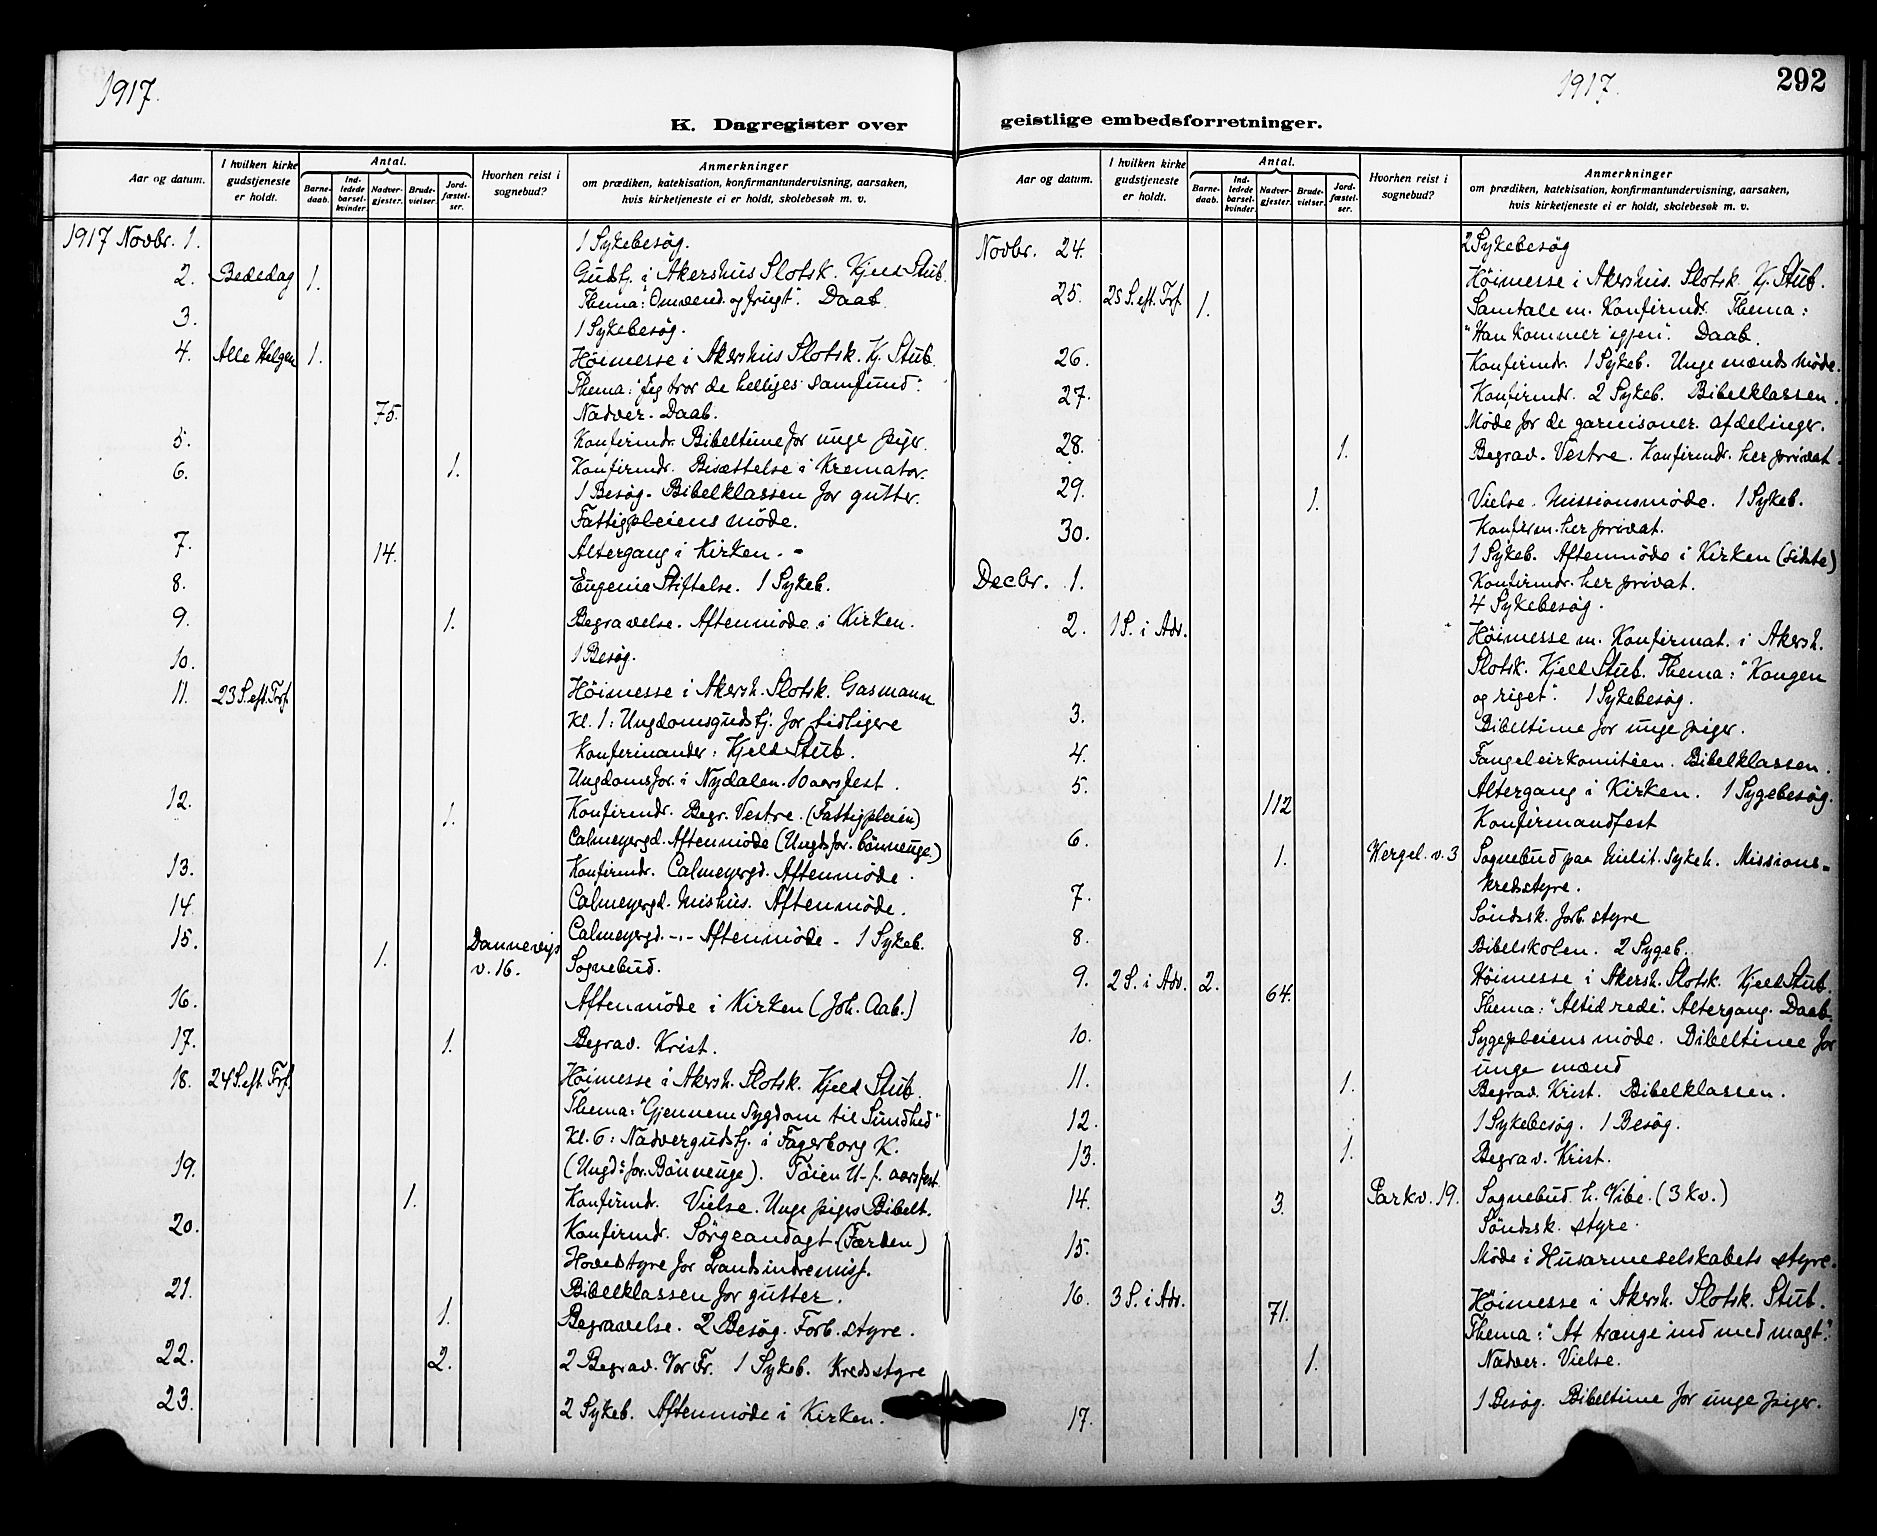 1917.
K. Dagregister over
Aar og datum.
I hvilken kirke gudstjeneste er holdt.
Antal.
Barne-daab.
Ind-ledede barsel-kvinder.
Nadver-gjester.
Brude-vielser.
Jord-fæstel-ser.
Hvorhen reist i sognebud?
Anmerkninger
om prædiken, katekisation, konfirmantundervisning, aarsaken,
hvis kirketjeneste ei er holdt, skolebesøk m. v.
1917 Novbr. 1. 1 Sykebesøg.
2. Bededag 1. Gudstj. i Akershus Slotsk. Kjeld Stub.
Thema: "Omvend. og frugt". Daab
3. 1 Sykebesøg.
4. Alle Helgen 1. Höimesse i Akershus Slotsk. Kj. Stub.
Thema: "Jeg tror de helliges samfund".
75. Nadver. Daab.
5. Konfirmdr. Bibeltime for unge piger.
6. 1. Konfirmdr. Bisættelse i Kremator.
1 Besøg. Bibelklassen for gutter.
Fattigpleiens møde.
7. 14. Altergang i Kirken. -
8. Eugenia Stiftelse. 1 Sykeb.
9. 1. Begravelse. Aftenmöde i Kirken.
10. 1 Besøg.
11. 23 S. eft. Trf. Höimesse i Akersh. Slotsk. Gasmann
Kl. 1: Ungdomsgudstj. for tidligere
konfirmander: Kjeld Stub.
Ungdomsfor. i Nydalen. 10 aarsfest.
12. 1. Konfirmdr. Begr. Vestre. (Fattigpleien)
Calmeyergd. Aftenmöde (Ungdsfor. bönneuge)
13. Konfirmdr. Calmeyergd. Aftenmöde.
14. Calmeyergd. Mishus. Aftenmöde.
15. Calmeyergd. -"- Aftenmöde - 1 Sykeb.
1. Dannevigs v. 16. Sognebud.
16. Aftenmöde i Kirken (Joh. Aab.)
17. 1. Begrav. Krist.
18. 24 S. eft. Trf. Höimesse i Akersh. Slotsk. Kjeld Stub.
Thema: "Gjennem Sygdom til Sundhed"
Kl. 6: Nadvergudstj. i Fagerborg K.
19. (Ungd: for. Bönneuge). Töien U-f. aarsfest.
1. Konfirmdr. Vielse. Unge pigers Bibelt.
20. Konfirmdr. Sörgeandagt (Færden)
Hovedstyre for Landsindremisj.
21. Bibelklassen for gutter.
1. Begravelse. 2 Besøg. Forb. styre.
22. 2. 2 Begrav. Vor Fr. 1 Sykeb. Kredsstyre
23. 2 Sykeb. Aftenmöde i Kirken.
1917.
292
geistlige embedsforretninger.
Aar og datum.
I hvilken kirke gudstjeneste er holdt.
Antal.
Barne-daab.
Ind-ledede barsel-kvinder.
Nadver-gjester.
Brude-vielser.
Jord-fæstel-ser.
Hvorhen reist i sognebud?
Anmerkninger
om prædiken, katekisation, konfirmantundervisning, aarsaken,
hvis kirketjeneste ei er holdt, skolebesøk m. v.
Novbr. 24. 2 Sykebesøg
25. 25 S. eft. Trf. 1. Höimesse i Akershus. Slotsk. Kj. Stub.
Samtale m. Konfirmdr. Thema:
"Han kommer igjen". Daab.
26. Konfirmdr. 1 Sykeb. Unge mænds möde.
27. Konfirmdr. 2 Sykeb. Bibelklassen.
Möde for de garnisoner. afdelinger.
28. 1. Begrav. Vestre. Konfirmdr. her privat.
29. 1. Vielse. Missionsmöde. 1 Sykeb.
Konfirm. her privat.
30. 1 Sykeb. Aftenmöde i Kirken (sidste)
Konfirmdr. her privat.
Decbr. 1. 4 Sykebesøg.
2. 1 S. i Adv. Höimesse m. Konfirmat. i Akersh.
Slotsk. Kjeld Stub. Thema: "Kongen
og riget". 1 Sykebesøg.
3. Bibeltime for unge piger.
4. Fangeleirkomitéen. Bibelklassen.
5. 112 Altergang i Kirken. 1 Sygebesøg.
Konfirmandfest
6. 1. Wergel. v. 3 Sognebud paa Milit. Sykeh. Missions-
kredsstyre.
7. Söndsk. forb. styre
8. Bibelskolen. 2 Sygeb.
9. 2 S. i Adv. 2. 64. Höimesse i Akersh. Slotsk. Kjeld Stub.
Thema: "Altid rede". Altergang. Daab.
10. Sygepleiens möde. Bibeltime for
unge mænd
11. 1. Begrav. Krist. Bibelklassen.
12. 1 Sykebesøg. 1 Besøg.
13. 1. Begrav. Krist.
14. 3. Parkv. 19. Sognebud h. Vibe. (3 Kv.)
Söndsk. styre.
15. Möde i Husarmeselskabets styre.
16. 3 S. i Adv. 71. Höimesse i Akersh. Slotsk. Stub.
Thema: "At trænge ind med magt".
1. Nadver. Vielse.
17. 1 Besøg. Bibeltime for unge piger.